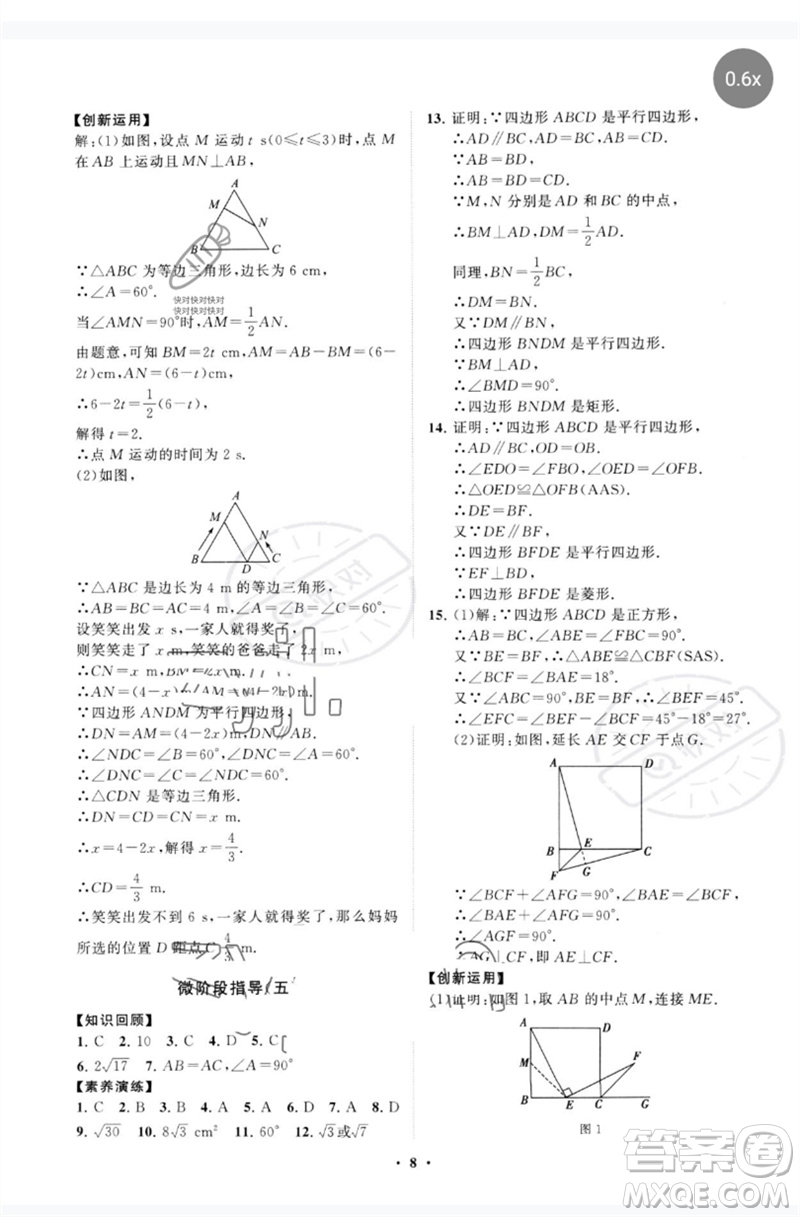 0.6x
【创新运用】
解:(1)如图,设点 M 运动 t s(0≤t≤3)时,点 M
在 AB 上运动且 MN⊥AB,
A
M
N
B
C
∵△ABC 为等边三角形,边长为 6 cm,
∴∠A=60°.
快对快对快对
快对快对快对
当∠AMN=90°时,AM=1/2 AN.
由题意,可知 BM=2t cm,AM=AB-BM=(6-
2t)cm,AN=(6-t)cm,
∴6-2t=1/2(6-t),
解得 t=2.
∴点 M 运动的时间为 2 s.
(2)如图,
A
M
N
B
D
C
∵△ABC 是边长为 4 m 的等边三角形,
∴AB=AC=4 m,∠A=∠C=60°.
设笑笑出发 x s,一家人就得奖了,
则笑笑走了 x m,笑笑的爸爸走了 2x m.
∴CN=x m,BM=2x m.
∴AN=(4-x)m,AM=(4-2x)m.
∵四边形 ANDM 为平行四边形,
∴DN=AM=(4-2x)m,DN∥AB.
∴∠NDC=∠B=60°.
∴∠DNC=∠A=60°.
∴∠NDC=∠DNC=∠C=60°.
∴△CDN 是等边三角形.
∴DN=CD=CN.
∴x=4-2x,解得 x=4/3.
∴CD=4/3 m.
∴笑笑出发不到 6 s,一家人就得奖了,那么妈妈
所选的位置 D 距点 C 4/3 m.
微阶段指导(五
【知识回顾】
1. C 2. 10 3. C 4. D 5. C
6. 2√17 7. AB=AC,∠A=90°
【素养演练】
1. C 2. B 3. C 4. C 5. A 6. D 7. A 8. D
9. √30 10. 8√3 cm² 11. 60° 12. √3或√7
13. 证明:∵四边形 ABCD 是平行四边形,
∴AD∥BC,AD=BC.
∵AB=BD,
∴BD=CD.
∵M、N 分别是 AD 和 BC 的中点,
∴BM⊥AD,DM=1/2 AD.
同理,BN=1/2 BC.
∴DM=BN.
又∵DM∥BN,
∴四边形 BNDM 是平行四边形.
∵BM⊥AD,
∴∠BMD=90°.
∴四边形 BNDM 是矩形.
14. 证明:∵四边形 ABCD 是平行四边形,
∴AD∥BC,OD=OB.
∴∠EDO=∠FBO,∠OED=∠OFB.
∴△OED≌△OFB(AAS).
∴DE=BF.
又∵DE∥BF,
∴四边形 BFDE 是平行四边形.
∵EF⊥BD,
∴四边形 BFDE 是菱形.
15. (1)解:∵四边形 ABCD 是正方形,
∴AB=BC,∠ABC=∠CBF=90°.
又∵BE=BF,∴△ABE≌△CBF(SAS).
∴∠BCF=∠BAE=18°.
∵∠CBF=90°,BE=BF,∴∠BEF=45°.
∴∠EFC=∠BEF-∠BCF=45°-18°=27°.
(2)证明:如图,延长 AE 交 CF 于点 G.
A
D
B
E
C
F
G
∵∠BCF+∠AFG=90°,∠BAE=∠BCF,
∴∠BAE+∠AFG=90°.
∴∠AGF=90°.
∴AG⊥CF,即 AE⊥CF.
【创新运用】
(1)证明:如图1,取 AB 的中点 M,连接 ME.
A
D
F
M
B
E
C
G
图 1
• 8 •
答案圈
MXQE.COM